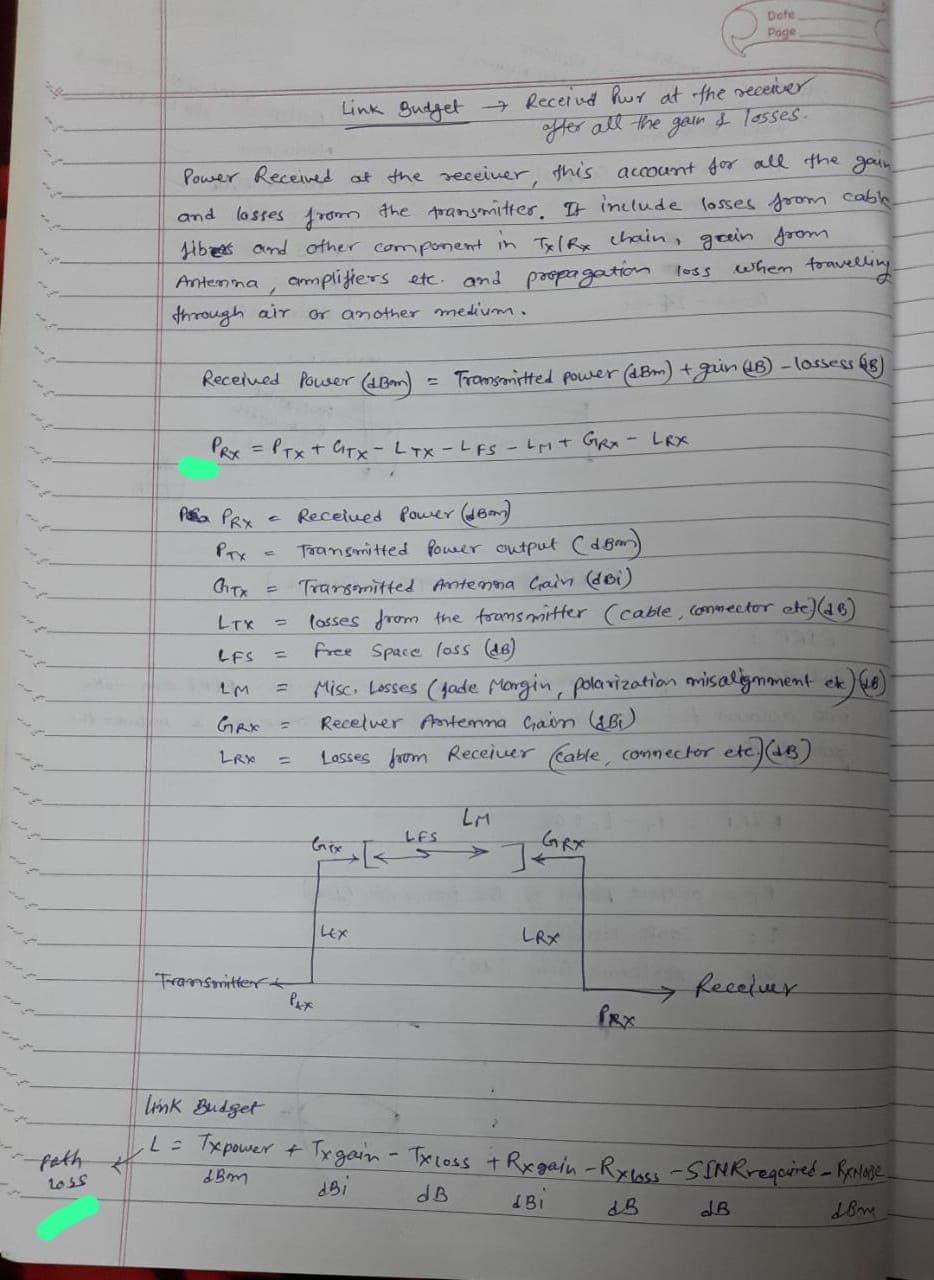 Date
Page
Link Budget → Received Pwr at the receiver
after all the gain & losses.
Power Received at the receiver, this account for all the gain
and losses from the transmitter. It include losses from cable
fibres and other component in Tx/Rx chain, gain from
Antenna, amplifiers etc. and propagation loss when travelling
through air or another medium.
Received Power (dBm) = Transmitted power (dBm) + gain (dB) - lossess (dB)
PRX = PTX + GTX - LTX - LFS - LM + GRX - LRX
PRX = Received Power (dBm)
PTX = Transmitted Power output (dBm)
GTX = Transmitted Antenna Gain (dBi)
LTX = losses from the transmitter (cable, connector etc)(dB)
LFS = free Space loss (dB)
LM = Misc. Losses (fade Margin, polarization misalignment etc)(dB)
GRX = Receiver Antenna Gain (dBi)
LRX = Losses from Receiver (cable, connector etc)(dB)
LM
GTX LFS GRX
LTX LRX
Transmitter Receiver
PTX PRX
Link Budget
L = Txpower + Txgain - Txloss + Rxgain - Rxloss - SINRrequired - RxNoise
path loss
dBm dBi dB dBi dB dB dBm